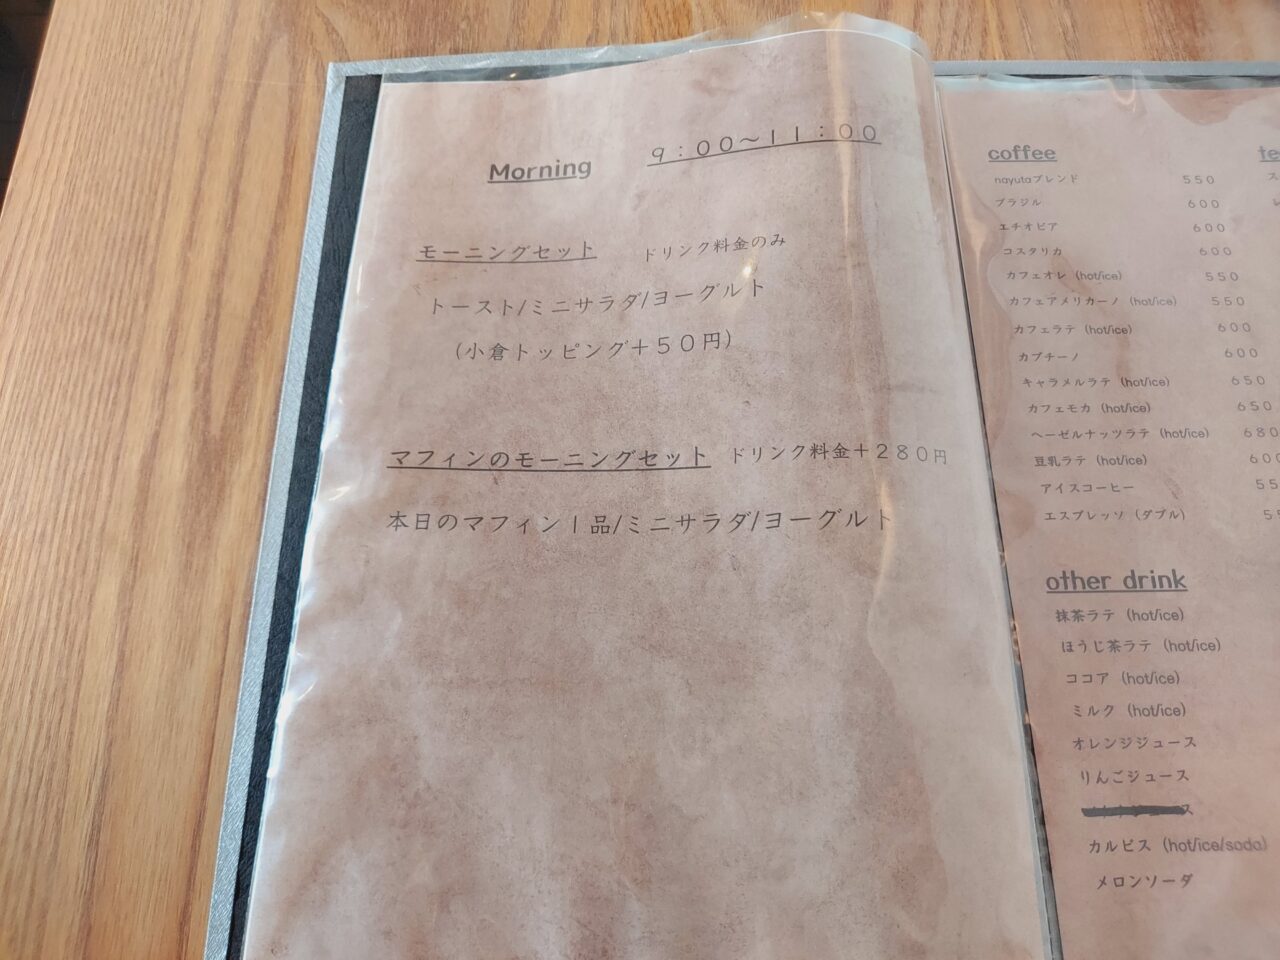 Morning　９：００～１１：００
モーニングセット　ドリンク料金のみ
トースト/ミニサラダ/ヨーグルト
（小倉トッピング＋５０円）
マフィンのモーニングセット　ドリンク料金＋２８０円
本日のマフィン１品/ミニサラダ/ヨーグルト
coffee
nayutaブレンド　５５０
ブラジル　６００
エチオピア　６００
コスタリカ　６００
カフェオレ（hot/ice）　５５０
カフェアメリカーノ（hot/ice）　５５０
カフェラテ（hot/ice）　６００
カプチーノ　６００
キャラメルラテ（hot/ice）　６５０
カフェモカ（hot/ice）　６５０
ヘーゼルナッツラテ（hot/ice）　６８０
豆乳ラテ（hot/ice）　６００
アイスコーヒー　５５
エスプレッソ（ダブル）　５５
other drink
抹茶ラテ（hot/ice）
ほうじ茶ラテ（hot/ice）
ココア（hot/ice）
ミルク（hot/ice）
オレンジジュース
りんごジュース
カルピス（hot/ice/soda）
メロンソーダ